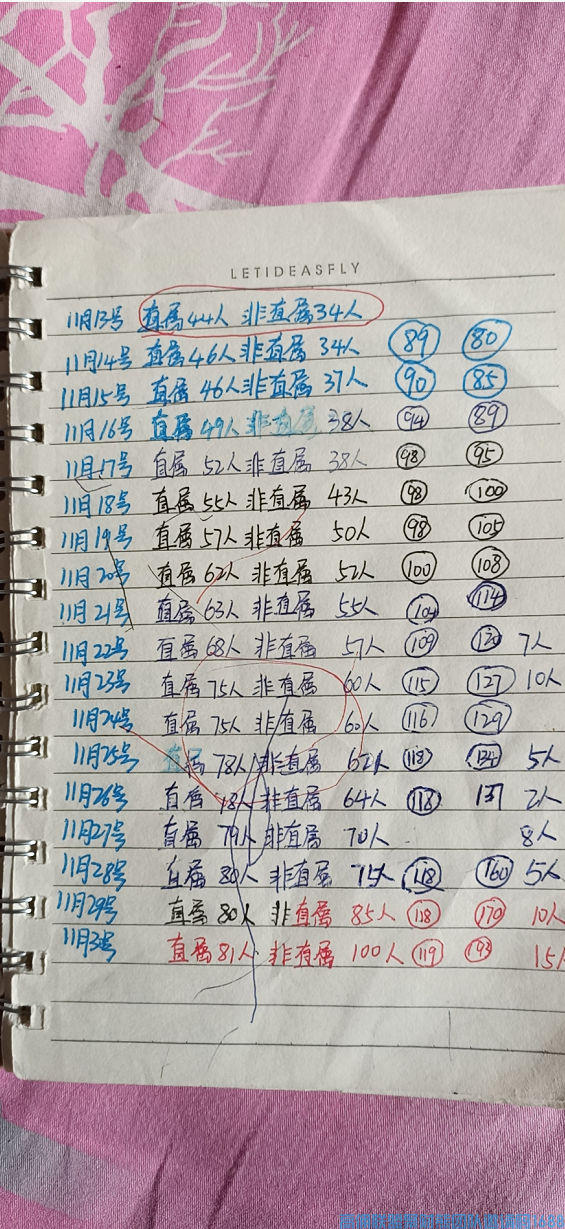 LETIDEASFLY
11月13号 直属44人 非直属34人
11月14号 直属46人 非直属 34人 89 80
11月15号 直属 46人 非直属 37人 90 85
11月16号 直属 49人 非直属 38人 94 89
11月17号 直属 52人 非直属 38人 98 95
11月18号 直属 55人 非直属 43人 98 100
11月19号 直属 57人 非直属 50人 98 105
11月20号 直属 62人 非直属 52人 100 108
11月21号 直属 63人 非直属 55人 104 114
11月22号 直属 68人 非直属 57人 109 120 7人
11月23号 直属 75人 非直属 60人 115 127 10人
11月24号 直属 75人 非直属 60人 116 129
11月25号 直属 78人 非直属 62人 118 134 5人
11月26号 直属 78人 非直属 64人 118 137 2人
11月27号 直属 79人 非直属 70人 8人
11月28号 直属 80人 非直属 75人 118 160 5人
11月29号 直属 80人 非直属 85人 118 170 10人
11月3号 直属 81人 非直属 100人 119 193 15人